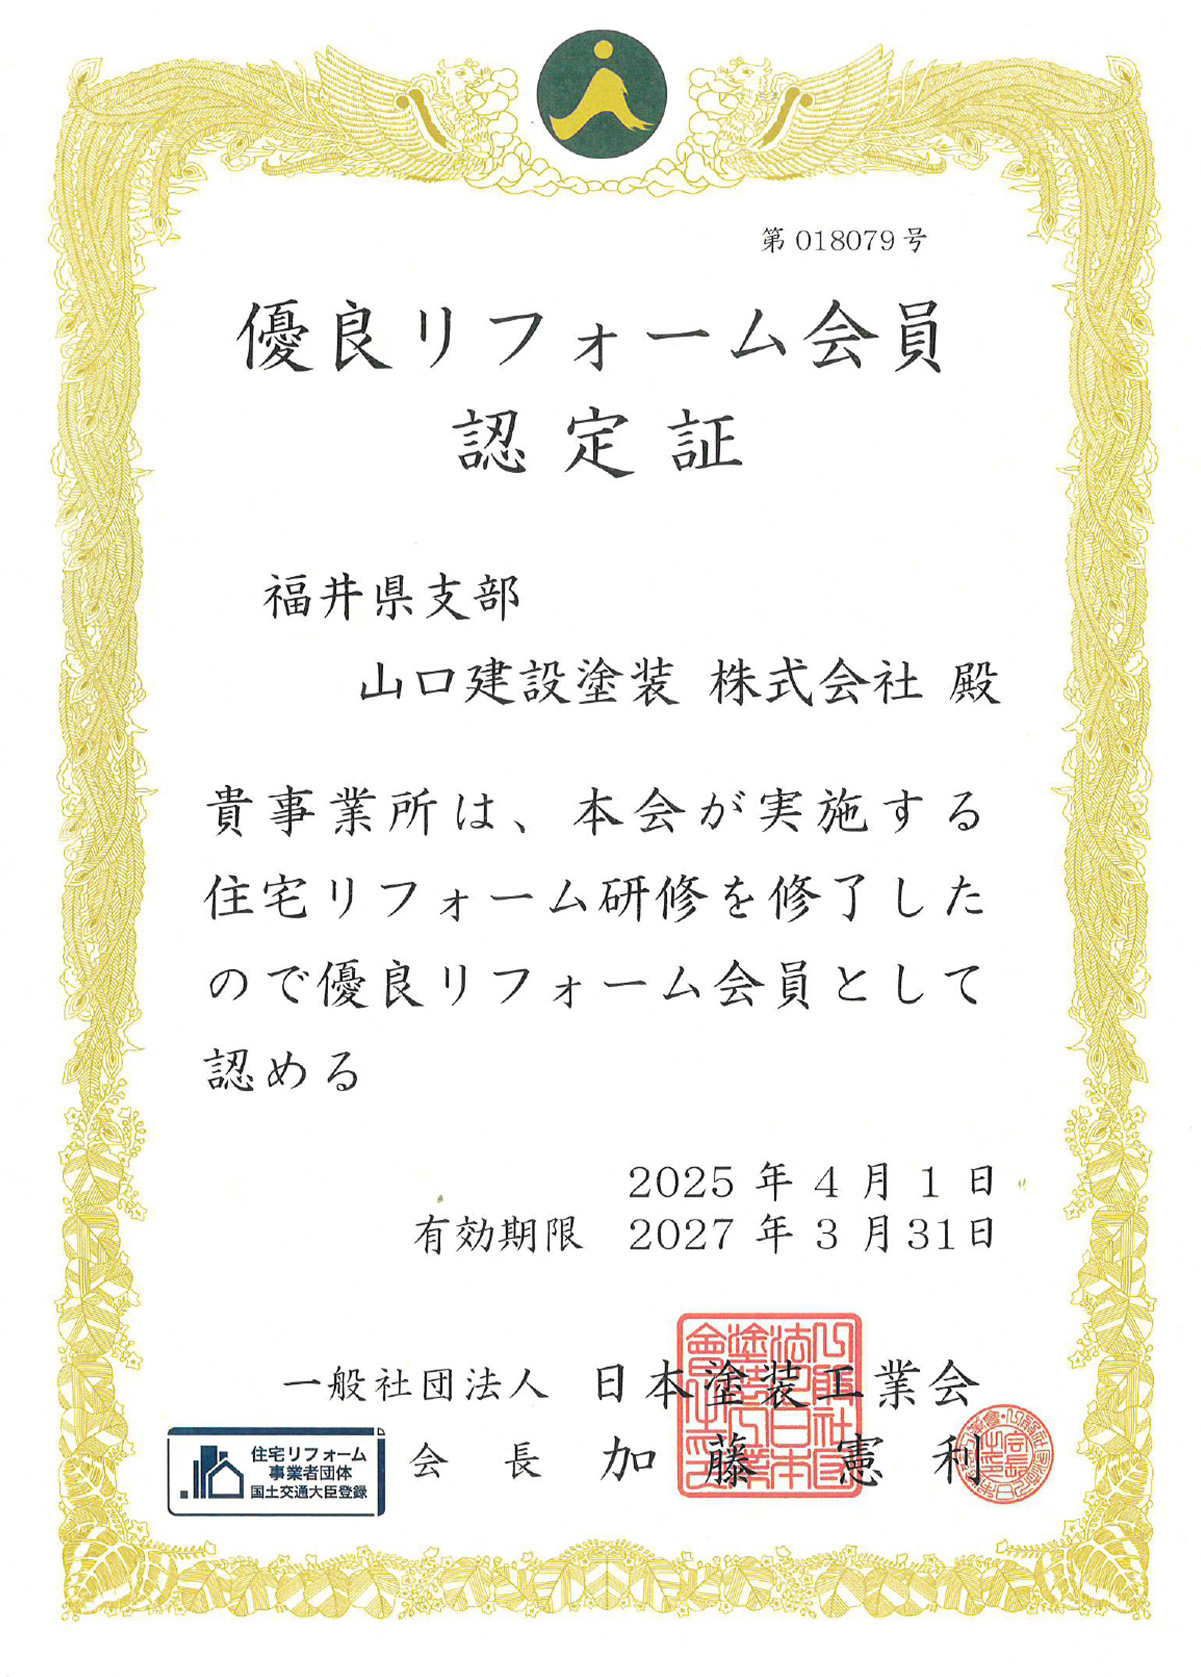 第018079号
優良リフォーム会員
認定証
福井県支部
山口建設塗装 株式会社 殿
貴事業所は、本会が実施する
住宅リフォーム研修を修了した
ので優良リフォーム会員として
認める
2025年4月1日
有効期限 2027年3月31日
一般社団法人 日本塗装工業会
会長 加藤憲利
住宅リフォーム
事業者団体
国土交通大臣登録